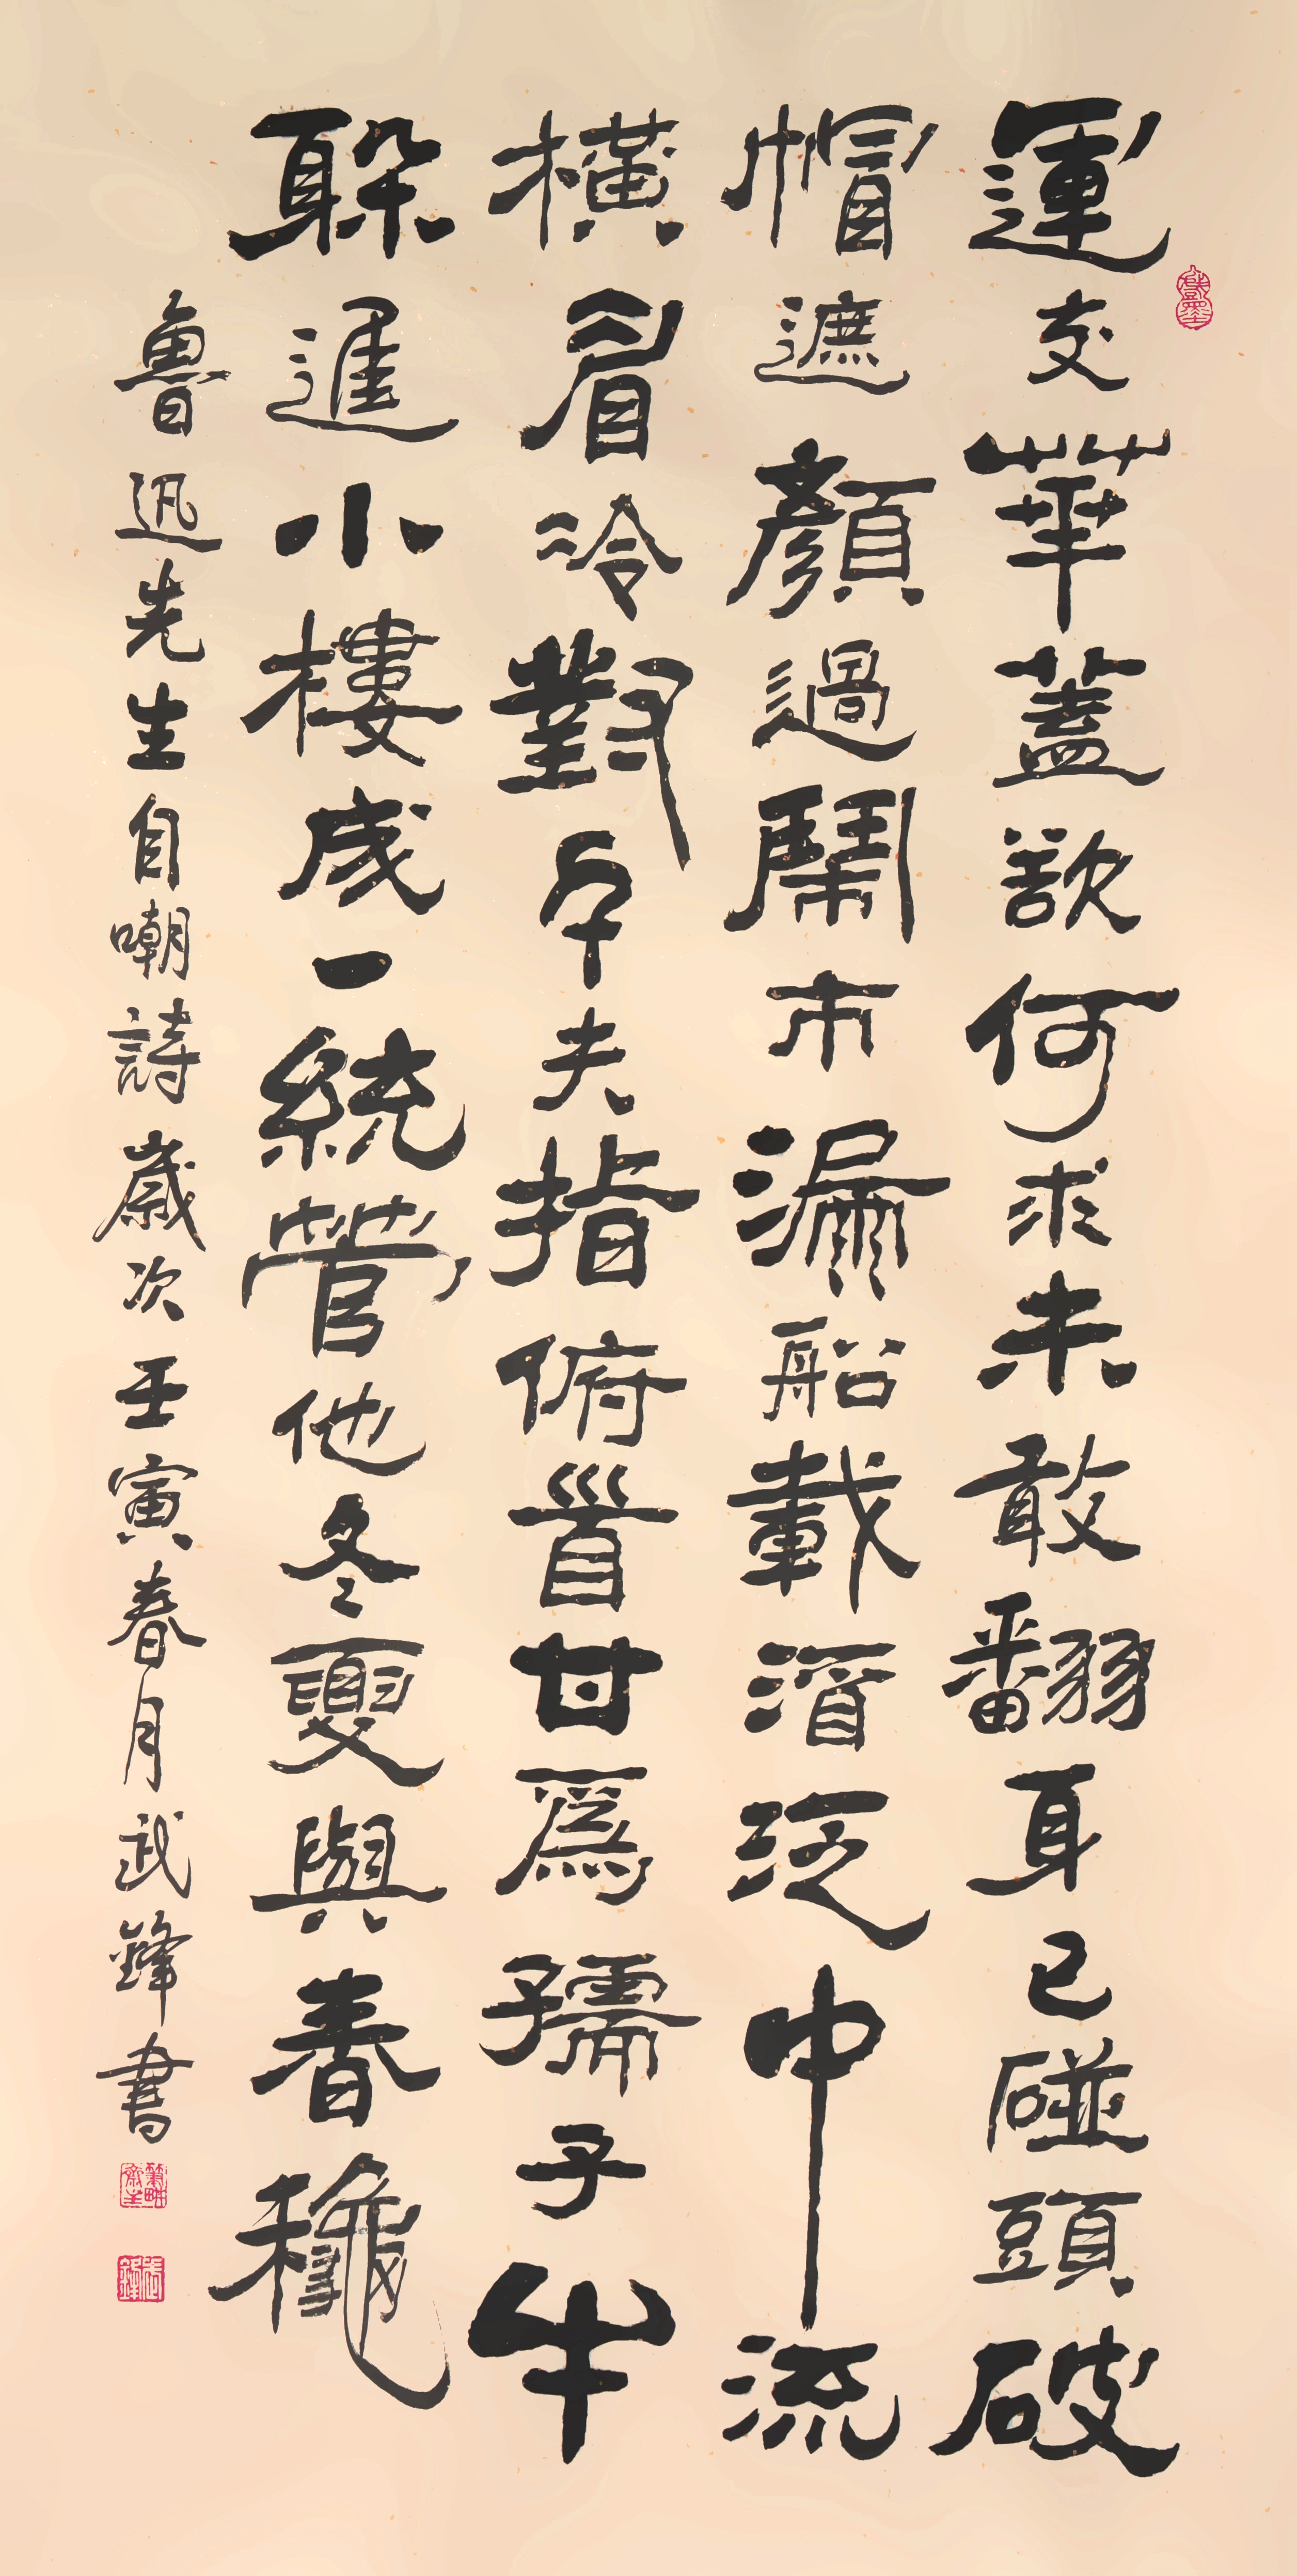 運交華蓋欲何求未敢翻身已碰頭破
帽遮顏過鬧市漏船載酒泛中流
橫眉冷對千夫指俯首甘爲孺子牛
躲進小樓成一統管他冬夏與春龝
魯迅先生自嘲詩歲次壬寅春月武鋒書